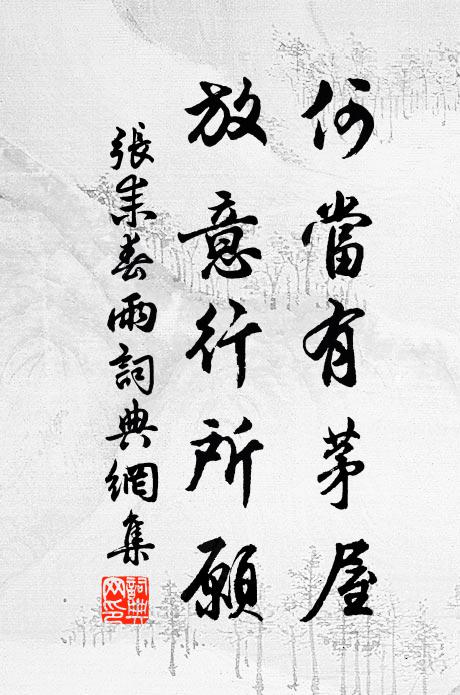 何當有茅屋
放意行所願
張耒春雨詞典網集
詞典網印